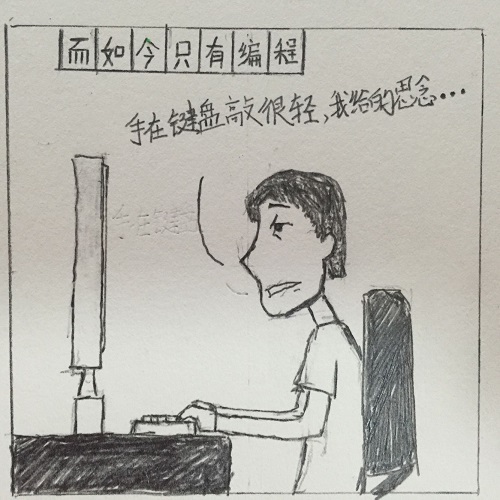 而如今只有编程
手在键盘敲很轻,我给的思念...